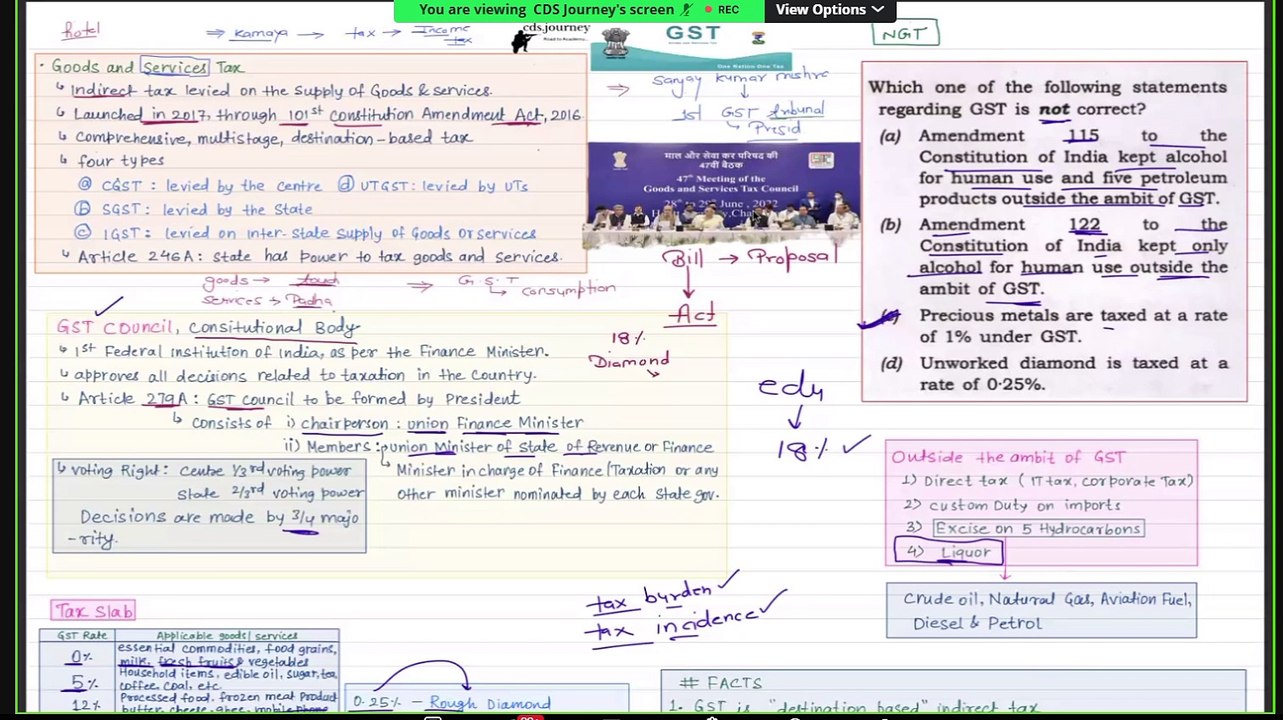 You are viewing CDS Journey's screen
REC
View Options
hotel
⇒ Kamaya → tax → Income tax
cds.journey
GST
One Nation-One Tax
NGT
• Goods and Services Tax
↳ Indirect tax levied on the supply of Goods & services.
↳ Launched in 2017, through 101st Constitution Amendment Act, 2016.
↳ Comprehensive, multistage, destination-based tax
↳ four types
ⓐ CGST: levied by the centre ⓓ UTGST: levied by UTs
ⓑ SGST: levied by the State
ⓒ IGST: levied on Inter-State supply of Goods or services
↳ Article 246A: State has power to tax goods and services.
⇒ Sanjay Kumar mishra
1st GST tribunal
↳ Presid
माल और सेवा कर परिषद की
47वीं बैठक
47th Meeting of the
Goods and Services Tax Council
28th to 29th June, 2022
Which one of the following statements
regarding GST is not correct?
(a) Amendment 115 to the
Constitution of India kept alcohol
for human use and five petroleum
products outside the ambit of GST.
(b) Amendment 122 to the
Constitution of India kept only
alcohol for human use outside the
ambit of GST.
Precious metals are taxed at a rate
of 1% under GST.
(d) Unworked diamond is taxed at a
rate of 0·25%.
Bill → Proposal
Act
18%
Diamond
goods → touch
services → Padha
⇒ G.S.T
↳ consumption
GST COUNCIL, Consitutional Body
↳ 1st Federal institution of India, as per the Finance Minister.
↳ approves all decisions related to taxation in the Country.
↳ Article 279A: GST Council to be formed by President
↳ Consists of i) chairperson: union Finance Minister
ii) Members: union Minister of State of Revenue or Finance
↳ Minister in charge of Finance/Taxation or any
other minister nominated by each State gov.
↳ Voting Right: Centre 1/3rd voting power
State 2/3rd voting power
Decisions are made by 3/4 majo
-rity.
edu
18%
Outside the ambit of GST
1) Direct tax (IT tax, corporate Tax)
2) custom Duty on imports
3) Excise on 5 Hydrocarbons
4) Liquor
Crude oil, Natural Gas, Aviation Fuel,
Diesel & Petrol
tax burden
tax incidence
Tax Slab
GST Rate Applicable goods/services
0% essential commodities, food grains,
milk, fresh fruits & vegetables
5% Household items, edible oil, sugar, tea,
coffee, coal, etc.
12% Processed food, frozen meat product
butter, cheese, ghee, mobile phone
0.25% - Rough Diamond
# FACTS
1. GST is "destination based" indirect tax